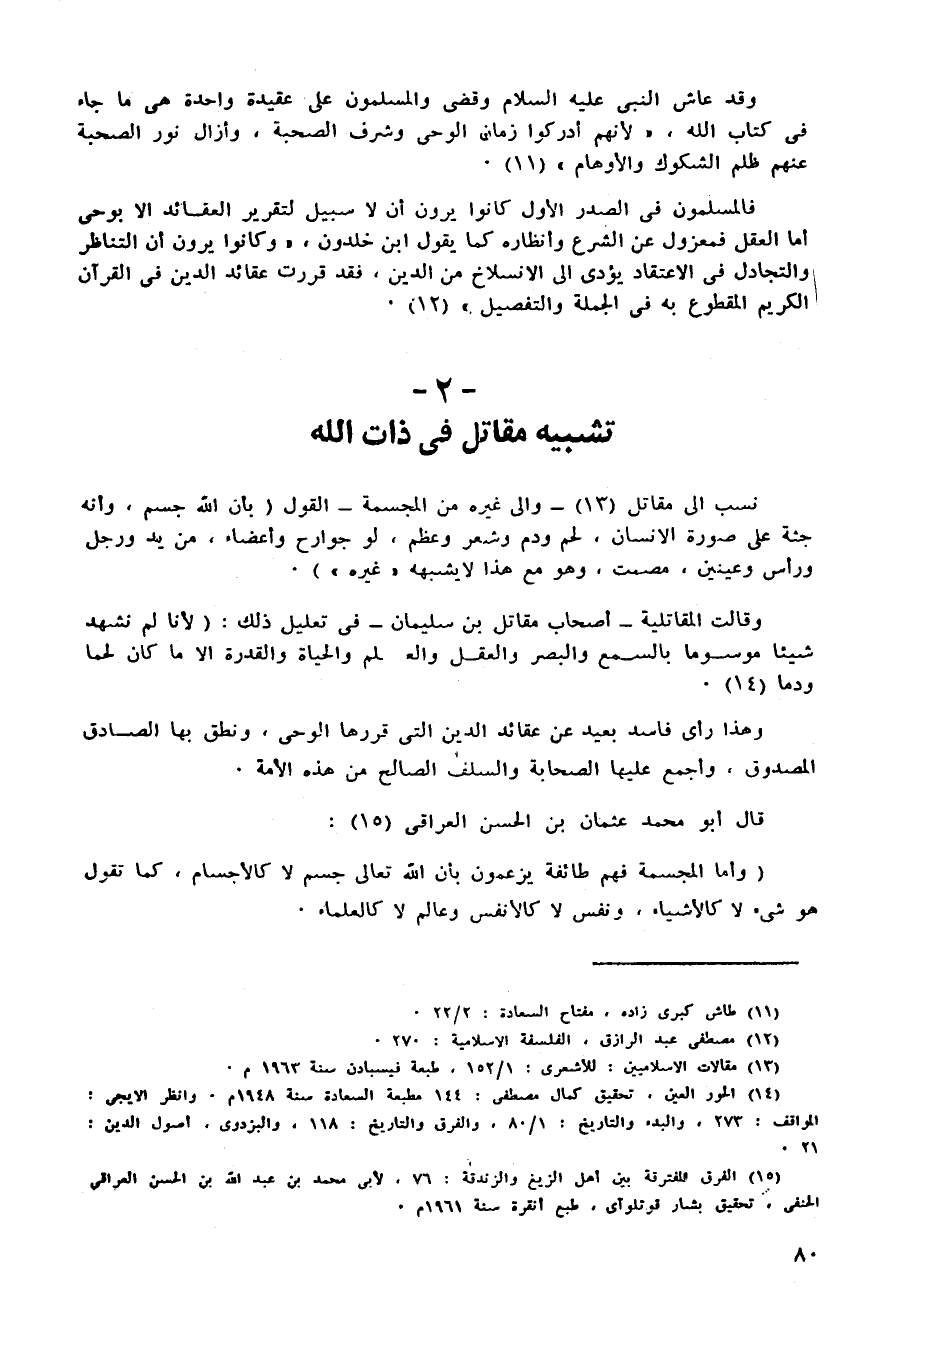 وقد عاش النبى عليه السلام وقضى والمسلمون على عقيدة واحدة هى ما جاء
فى كتاب الله ، « لأنهم أدركوا زمان الوحى وشرف الصحبة ، وأزال نور الصحبة
عنهم ظلم الشكوك والأوهام » (١١) ٠
فالمسلمون فى الصدر الأول كانوا يرون أن لا سبيل لتقرير العقـائد الا بوحى
أما العقل فمعزول عن الشرع وأنظاره كما يقول ابن خلدون ، « وكانوا يرون أن التناظر
والتجادل فى الاعتقاد يؤدى الى الانسلاخ من الدين ، فقد قررت عقائد الدين فى القرآن
الكريم المقطوع به فى الجملة والتفصيل » (١٢) ٠
- ٢ -
تشبيه مقاتل فى ذات الله
نسب الى مقاتل (١٣) ــ والى غيره من المجسمة ــ القول ( بأن الله جسم ، وأنه
جثة على صورة الانسان ، لحم ودم وشعر وعظم ، لو جوارح وأعضاء ، من يد ورجل
ورأس وعينين ، مصمت ، وهو مع هذا لايشبهه « غيره » ) ٠
وقالت المقاتلية ــ أصحاب مقاتل بن سليمان ــ فى تعليل ذلك : ( لأنا لم نشهد
شيئا موسـوما بالسـمع والبصر والعقـل والعـلم والحياة والقدرة الا ما كان لحما
ودما (١٤) ٠
وهذا رأى فاسد بعيد عن عقائد الدين التى قررها الوحى ، ونطق بها الصـادق
المصدوق ، وأجمع عليها الصحابة والسلف الصالح من هذه الأمة ٠
قال أبو محمد عثمان بن الحسن العراقى (١٥) :
( وأما المجسمة فهم طائفة يزعمون بأن الله تعالى جسم لا كالأجسام ، كما تقول
هو شىء لا كالأشياء ، ونفس لا كالأنفس وعالم لا كالعلماء ٠
(١١) طاش كبرى زاده ، مفتاح السعادة : ٢٢/٢ ٠
(١٢) مصطفى عبد الرازق ، الفلسفة الاسلامية : ٢٧٠ ٠
(١٣) مقالات الاسلاميين : للأشعرى : ١٥٢/١ ، طبعة فيسبادن سنة ١٩٦٣ م ٠
(١٤) الحور العين ، تحقيق كمال مصطفى : ١٤٤ مطبعة السعادة سنة ١٩٤٨م ٠ وانظر الايجى :
المواقف : ٢٧٣ ، والبدء والتاريخ : ٨٠/١ ، والفرق والتاريخ : ١١٨ ، والبزدوى ، أصول الدين :
٢١ ٠
(١٥) الفرق المفترقة بين أهل الزيغ والزندقة : ٧٦ ، لأبى محمد بن عبد الله بن الحسن العراقى
الحنفى ، تحقيق بشار قوتلوآى ، طبع أنقرة سنة ١٩٦١م ٠
٨٠